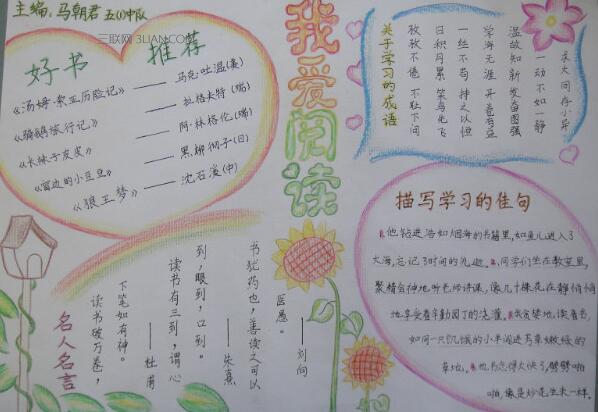 主编：马朝君 五(1)中队
三联网 3LIAN.COM
好书 推荐
《汤姆·索亚历险记》——马克·吐温(美)
《骑鹅旅行记》——拉格夫特(瑞)
《长袜子皮皮》——阿·林格伦(瑞)
《窗边的小豆豆》——黑柳彻子(日)
《狼王梦》——沈石溪(中)
我爱阅读
关于学习的成语
求大同存小异
一动不如一静
温故知新 发奋图强
学海无涯 开卷有益
一丝不苟 持之以恒
日积月累 笨鸟先飞
孜孜不倦 不耻下问
描写学习的佳句
1.他钻进浩如烟海的书籍里,如鱼儿进入了
大海,忘记了时间的流逝。2.同学们坐在教室里,
聚精会神地听老师讲课,像几十棵花在静悄悄
地享受着辛勤园丁的浇灌。3.我贪婪地读着书,
如同一只饥饿的小羊闯进芳草嫩绿的
草地。4.他书念得太快了,劈劈啪
啪,像是炒花生米一样。
名人名言
读书破万卷，
下笔如有神。
——杜甫
读书有三到，谓心
到，眼到，口到。
——朱熹
书犹药也，善读之可以
医愚。
——刘向